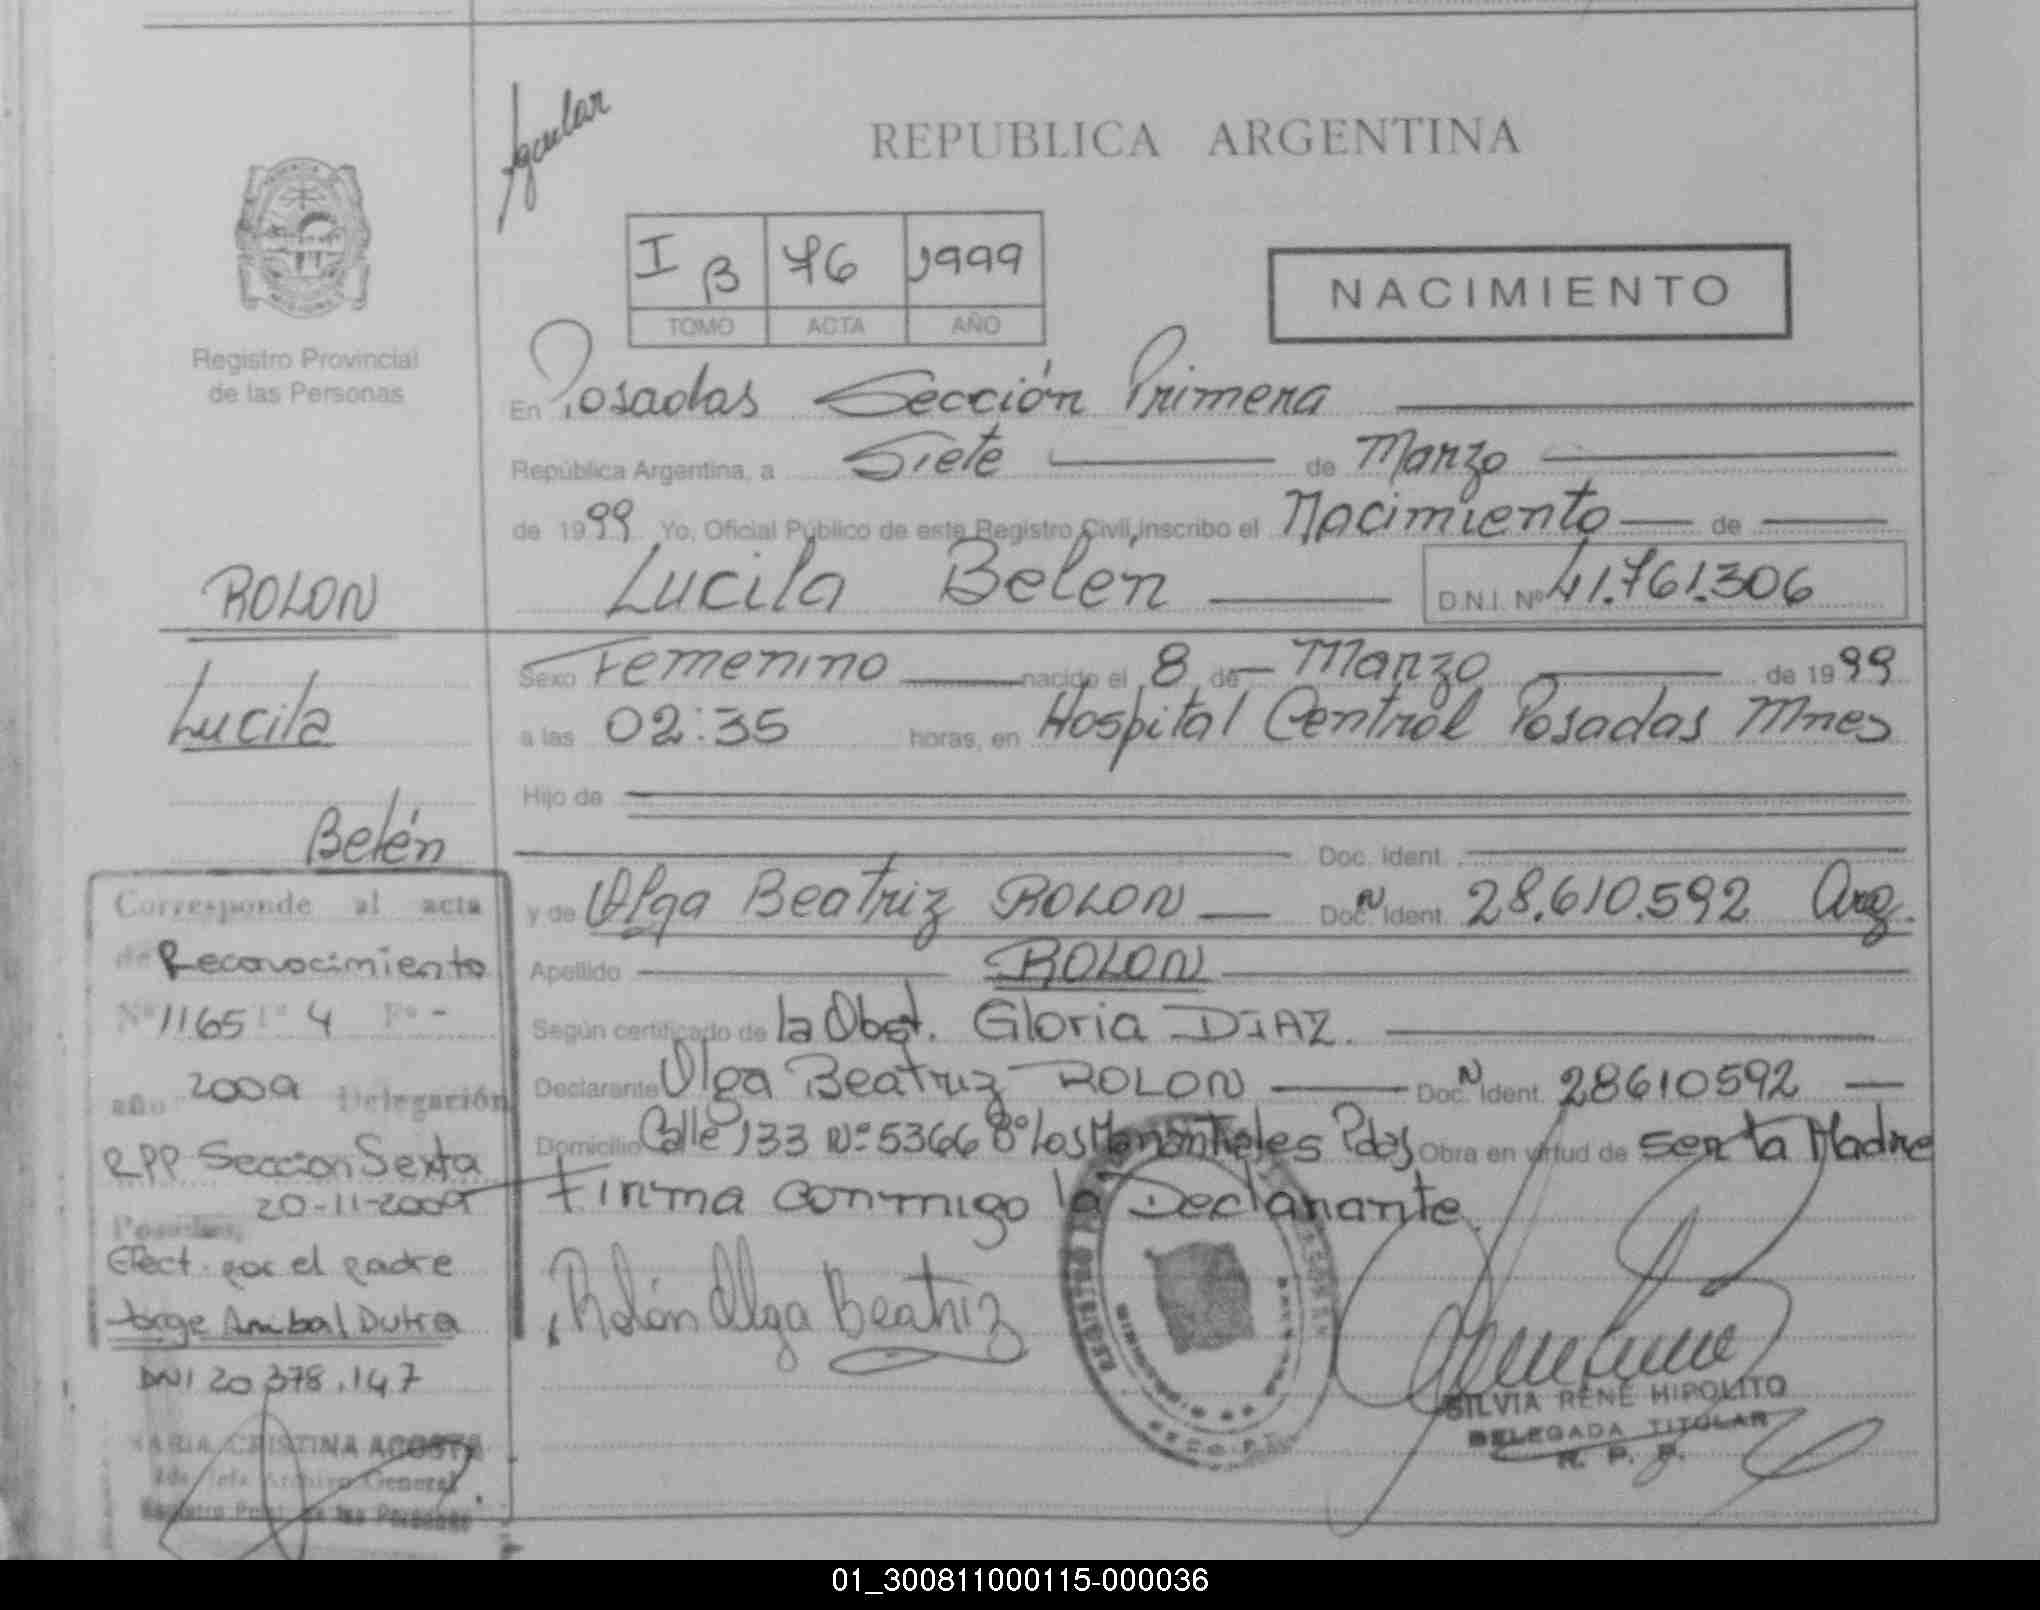 Aguilar
REPUBLICA ARGENTINA
I B 76 1999
TOMO ACTA AÑO
NACIMIENTO
Registro Provincial
de las Personas
En Posadas Sección Primera
República Argentina, a Siete de Marzo
de 1999 Yo, Oficial Público de este Registro Civil, inscribo el Nacimiento de
Lucila Belén D.N.I. Nº 41.761.306
ROLON
Lucila
Belén
Sexo Femenino nacido el 8 de Marzo de 1999
a las 02:35 horas, en Hospital Central Posadas Mnes
Hijo de
Doc. Ident.
y de Olga Beatriz ROLON Doc. N Ident. 28.610.592 Arg.
Apellido ROLON
Según certificado de la Obst. Gloria DIAZ.
Declarante Olga Beatriz ROLON Doc. N Ident. 28610592
Domicilio Calle 133 Nº 5366 Bº Los Manantiales Pdas Obra en virtud de ser la Madre
Firma conmigo la Declarante.
Rolón Olga Beatriz
SILVIA RENE HIPOLITO
DELEGADA TITULAR
R. P. P.
Corresponde al acta
de Reconocimiento
Nº 1165 Tº 4 Fº -
año 2009 Delegación
RPP Seccion Sexta
Posadas, 20-11-2009
Efect. por el padre
Jorge Anibal Dutra
DNI 20.378.147
MARIA CRISTINA ACOSTA
Archivo General
Registro Prov. de las Personas
01_300811000115-000036